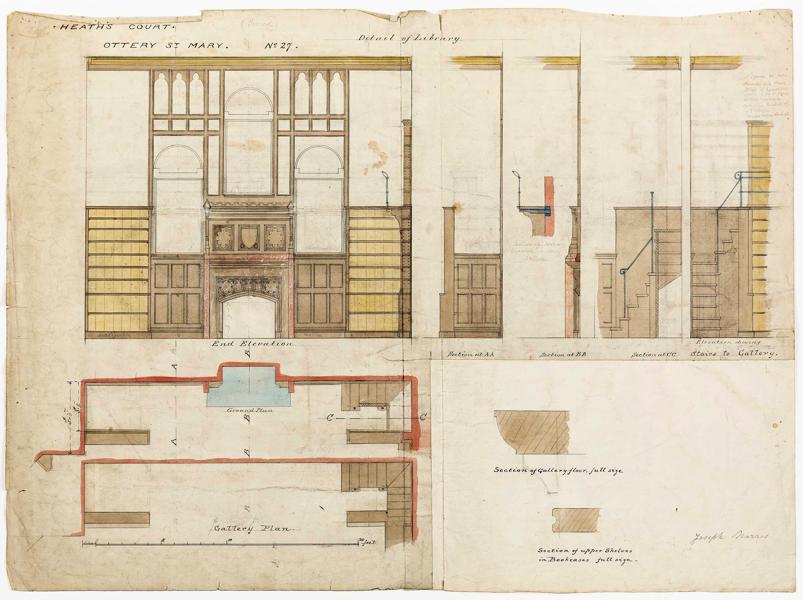 · HEATH'S COURT ·
OTTERY Sᵀ MARY. Nº 27.
Detail of Library.
End Elevation
Section at AA
Section at BB
Section at CC
Elevation showing
Stairs to Gallery.
A
B
Ground Plan
C
C
A
B
B
B
Gallery Plan
feet
Section of Gallery floor, full size
Section of upper Shelves
in Bookcases full size.
Joseph